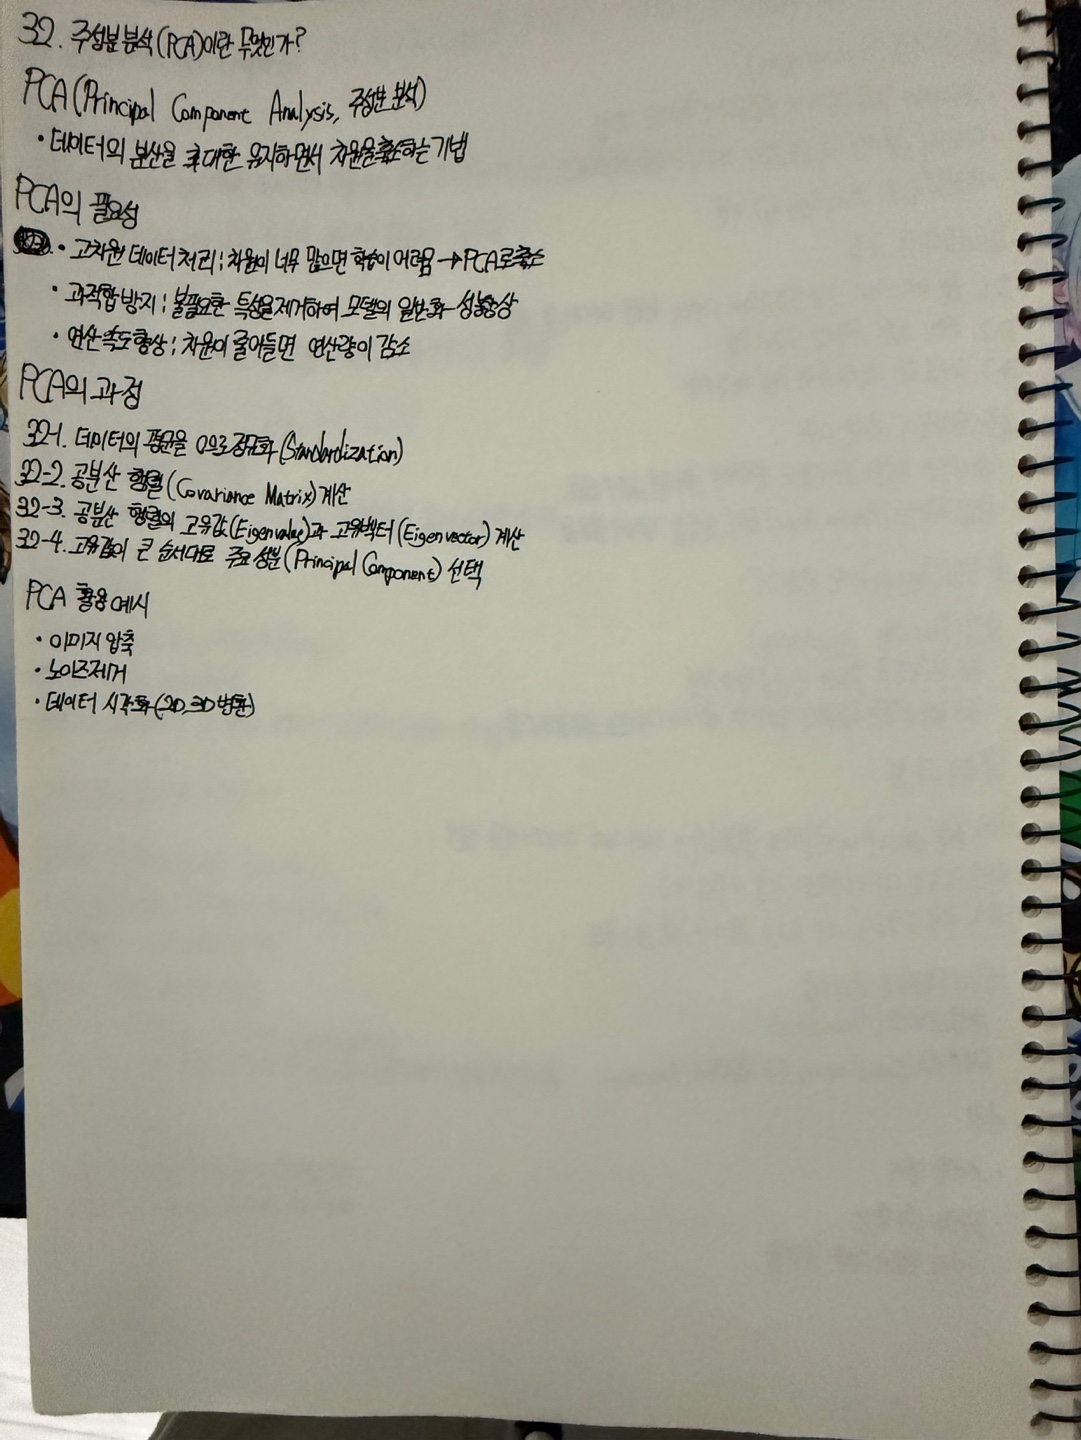 32. 주성분 분석(PCA)이란 무엇인가?
PCA(Principal Component Analysis, 주성분 분석)
• 데이터의 분산을 최대한 유지하면서 차원을 축소하는 기법
PCA의 필요성
• 고차원 데이터 처리 : 차원이 너무 많으면 학습이 어려움 → PCA로 축소
• 과적합 방지 : 불필요한 특성을 제거하여 모델의 일반화 성능 향상
• 연산 속도 향상 : 차원이 줄어들면 연산량이 감소
PCA의 과정
32-1. 데이터의 평균을 0으로 정규화(Standardization)
32-2. 공분산 행렬(Covariance Matrix) 계산
32-3. 공분산 행렬의 고유값(Eigenvalue)과 고유벡터(Eigenvector) 계산
32-4. 고유값이 큰 순서대로 주요 성분(Principal Component) 선택
PCA 활용 예시
• 이미지 압축
• 노이즈 제거
• 데이터 시각화(2D, 3D 변환)